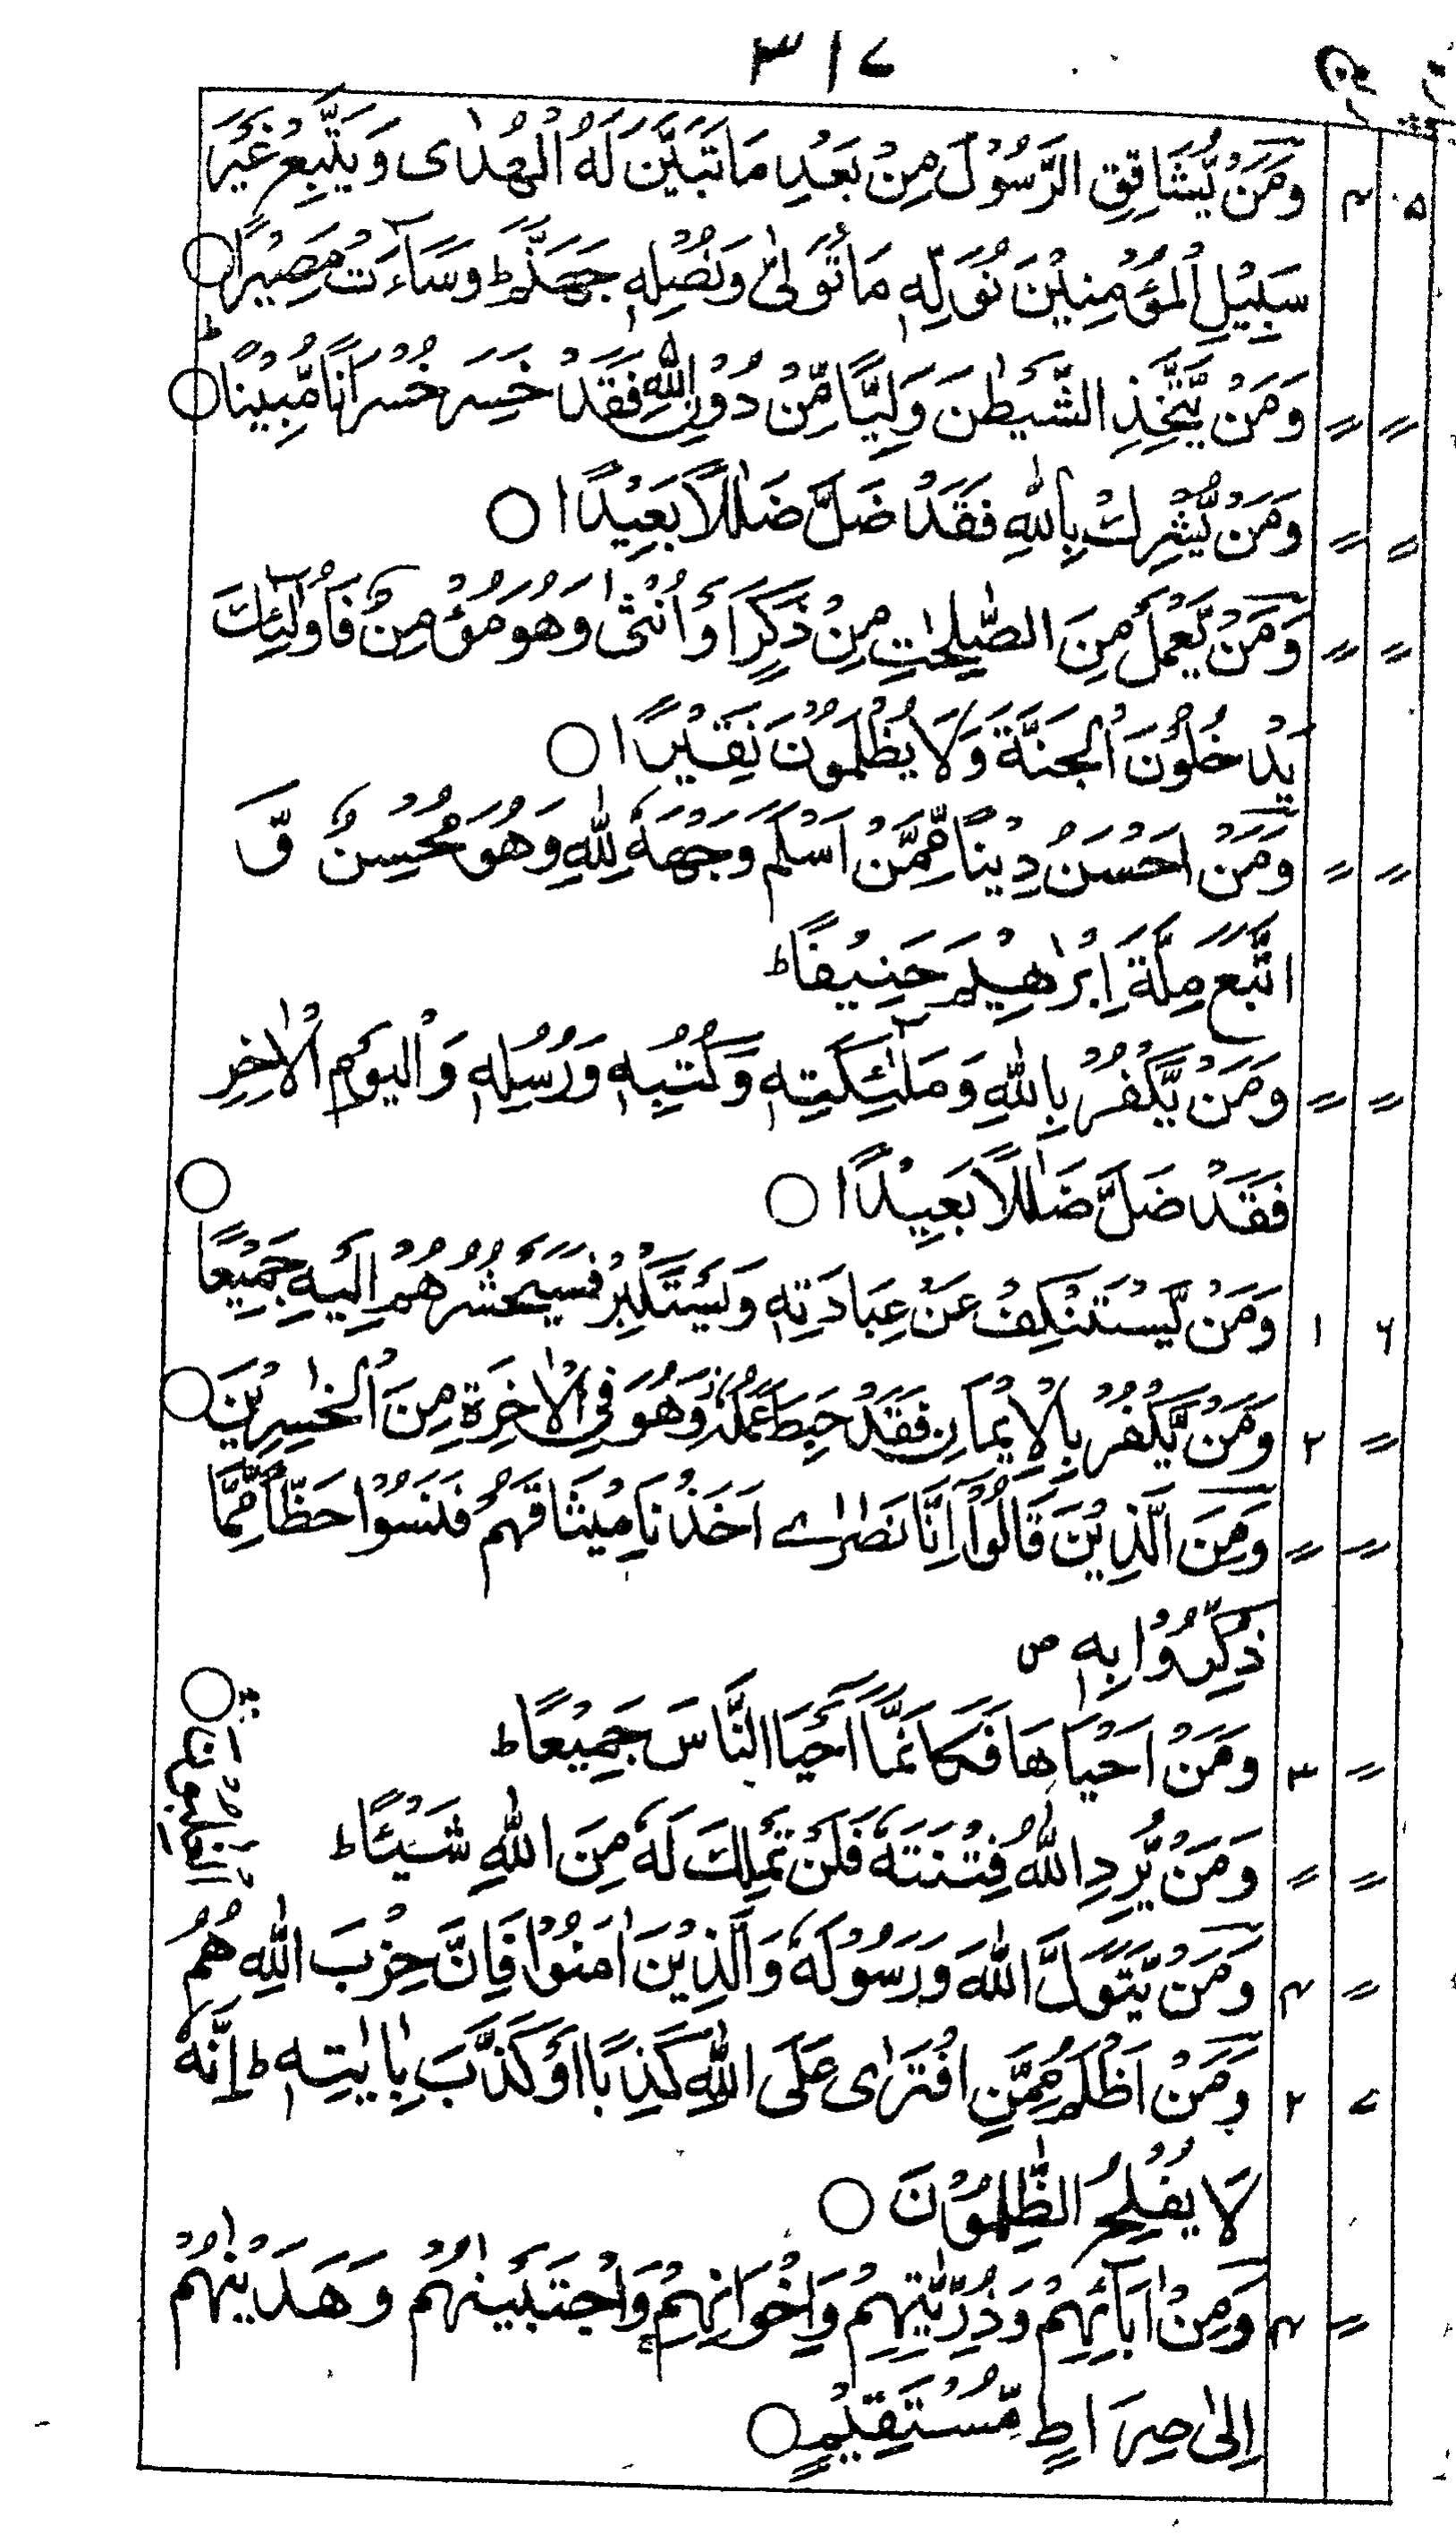 ٣١٧
٥ ٤ وَمَنْ يُّشَاقِقِ الرَّسُوْلَ مِنْۢ بَعْدِ مَا تَبَيَّنَ لَهُ الْهُدٰى وَيَتَّبِعْ غَيْرَ
سَبِيْلِ الْمُؤْمِنِيْنَ نُوَلِّهٖ مَا تَوَلّٰى وَنُصْلِهٖ جَهَنَّمَ ط وَسَآءَتْ مَصِيْرًا ○
〃 〃 وَمَنْ يَّتَّخِذِ الشَّيْطٰنَ وَلِيًّا مِّنْ دُوْنِ اللّٰهِ فَقَدْ خَسِرَ خُسْرَانًا مُّبِيْنًا ○ ط
〃 〃 وَمَنْ يُّشْرِكْ بِاللّٰهِ فَقَدْ ضَلَّ ضَلٰلًا بَعِيْدًا ○
〃 〃 وَمَنْ يَّعْمَلْ مِنَ الصّٰلِحٰتِ مِنْ ذَكَرٍ اَوْ اُنْثٰى وَهُوَ مُؤْمِنٌ فَاُولٰٓئِكَ
يَدْخُلُوْنَ الْجَنَّةَ وَلَا يُظْلَمُوْنَ نَقِيْرًا ○
〃 〃 وَمَنْ اَحْسَنُ دِيْنًا مِّمَّنْ اَسْلَمَ وَجْهَهٗ لِلّٰهِ وَهُوَ مُحْسِنٌ وَّ
اتَّبَعَ مِلَّةَ اِبْرٰهِيْمَ حَنِيْفًا ط
〃 〃 وَمَنْ يَّكْفُرْ بِاللّٰهِ وَمَلٰٓئِكَتِهٖ وَكُتُبِهٖ وَرُسُلِهٖ وَالْيَوْمِ الْاٰخِرِ
فَقَدْ ضَلَّ ضَلٰلًا بَعِيْدًا ○
٦ ١ وَمَنْ يَّسْتَنْكِفْ عَنْ عِبَادَتِهٖ وَيَسْتَكْبِرْ فَسَيَحْشُرُهُمْ اِلَيْهِ جَمِيْعًا ○
〃 ٢ وَمَنْ يَّكْفُرْ بِالْاِيْمَانِ فَقَدْ حَبِطَ عَمَلُهٗ ز وَهُوَ فِى الْاٰخِرَةِ مِنَ الْخٰسِرِيْنَ ○
〃 〃 وَمِنَ الَّذِيْنَ قَالُوْٓا اِنَّا نَصٰرٰے اَخَذْنَا مِيْثَاقَهُمْ فَنَسُوْا حَظًّا مِّمَّا
ذُكِّرُوْا بِهٖ ص
〃 ٣ وَمَنْ اَحْيَاهَا فَكَاَنَّمَآ اَحْيَا النَّاسَ جَمِيْعًا ط
〃 〃 وَمَنْ يُّرِدِ اللّٰهُ فِتْنَتَهٗ فَلَنْ تَمْلِكَ لَهٗ مِنَ اللّٰهِ شَيْئًا ط
〃 ٤ وَمَنْ يَّتَوَلَّ اللّٰهَ وَرَسُوْلَهٗ وَالَّذِيْنَ اٰمَنُوْا فَاِنَّ حِزْبَ اللّٰهِ هُمُ
الْغٰلِبُوْنَ ○
٧ ٢ وَمَنْ اَظْلَمُ مِمَّنِ افْتَرٰى عَلَى اللّٰهِ كَذِبًا اَوْ كَذَّبَ بِاٰيٰتِهٖ ط اِنَّهٗ
لَا يُفْلِحُ الظّٰلِمُوْنَ ○
〃 ٤ وَمِنْ اٰبَآئِهِمْ وَذُرِّيّٰتِهِمْ وَاِخْوَانِهِمْ ج وَاجْتَبَيْنٰهُمْ وَهَدَيْنٰهُمْ
اِلٰى صِرَاطٍ مُّسْتَقِيْمٍ ○